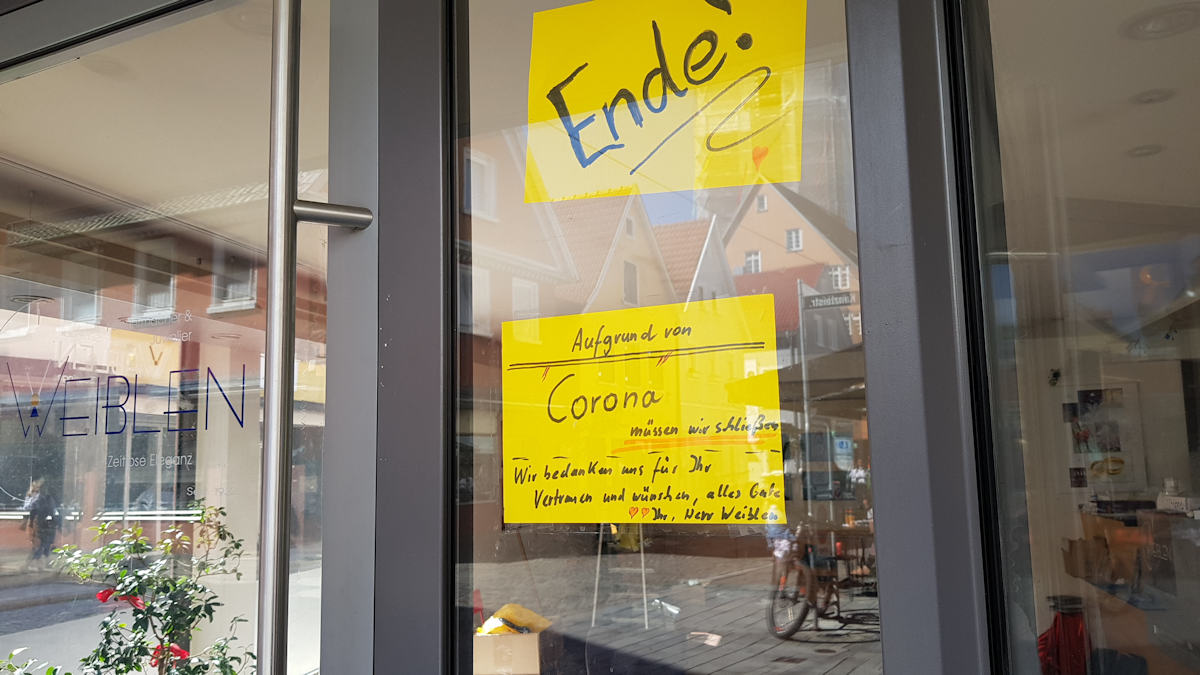 Ende!
Aufgrund von
Corona
müssen wir schließen
Wir bedanken uns für Ihr
Vertrauen und wünschen, alles Gute
Ihr, Herr Weiblen
&
Juwelier
WEIBLEN
Zeitlose Eleganz
Kanzleistr.